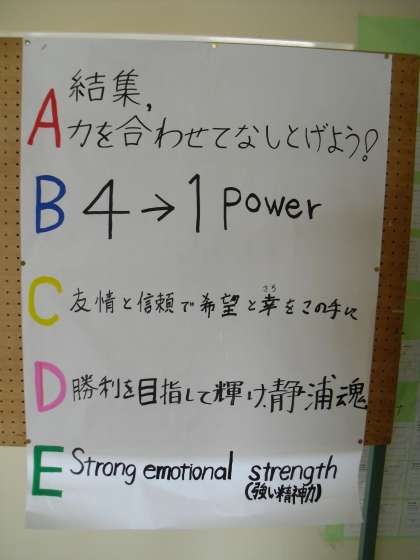 A 結集,
力を合わせてなしとげよう!
B 4→1 power
C 友情と信頼で希望と幸をこの手に
D 勝利を目指して輝け、静浦魂
E Strong emotional strength
(強い精神力)